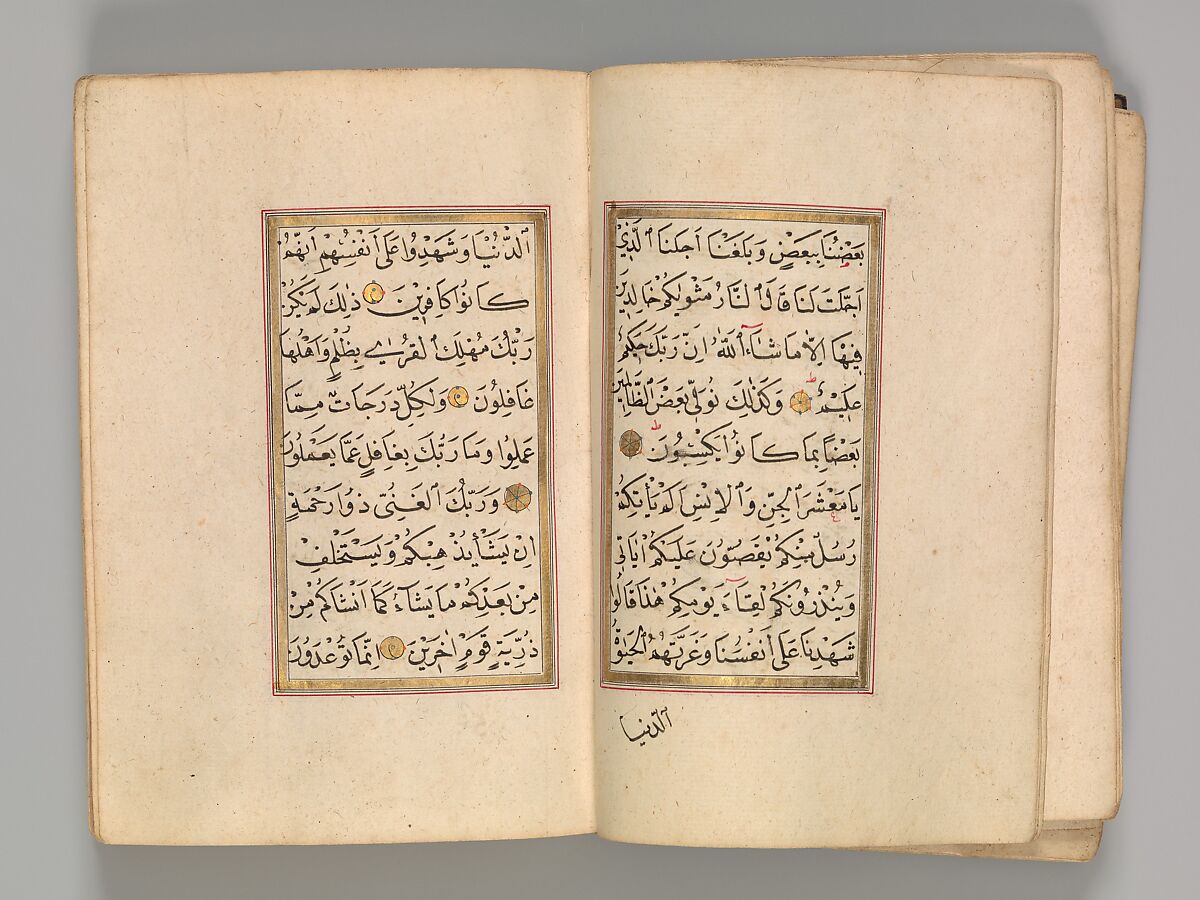 بَعْضُنَا بِبَعْضٍ وَبَلَغْنَا اَجَلَنَا الَّذِي
اَجَّلْتَ لَنَا قَالَ النَّارُ مَثْوٰيكُمْ خَالِدِينَ
فِيهَا اِلَّا مَا شَاءَ اللّٰهُ اِنَّ رَبَّكَ حَكِيمٌ
عَلِيمٌ وَكَذٰلِكَ نُوَلِّي بَعْضَ الظَّالِمِينَ
بَعْضًا بِمَا كَانُوا يَكْسِبُونَ
يَا مَعْشَرَ الْجِنِّ وَالْاِنْسِ اَلَمْ يَأْتِكُمْ
رُسُلٌ مِنْكُمْ يَقُصُّونَ عَلَيْكُمْ اٰيَاتِي
وَيُنْذِرُونَكُمْ لِقَاءَ يَوْمِكُمْ هٰذَا قَالُوا
شَهِدْنَا عَلٰى اَنْفُسِنَا وَغَرَّتْهُمُ الْحَيٰوةُ
الدُّنْيَا
الدُّنْيَا وَشَهِدُوا عَلٰى اَنْفُسِهِمْ اَنَّهُمْ
كَانُوا كَافِرِينَ ذٰلِكَ اَنْ لَمْ يَكُنْ
رَبُّكَ مُهْلِكَ الْقُرٰى بِظُلْمٍ وَاَهْلُهَا
غَافِلُونَ وَلِكُلٍّ دَرَجَاتٌ مِمَّا
عَمِلُوا وَمَا رَبُّكَ بِغَافِلٍ عَمَّا يَعْمَلُونَ
وَرَبُّكَ الْغَنِيُّ ذُوا رَحْمَةٍ
اِنْ يَشَأْ يُذْهِبْكُمْ وَيَسْتَخْلِفْ
مِنْ بَعْدِكُمْ مَا يَشَاءُ كَمَا اَنْشَاَكُمْ مِنْ
ذُرِّيَّةِ قَوْمٍ اٰخَرِينَ اِنَّمَا تُوعَدُونَ